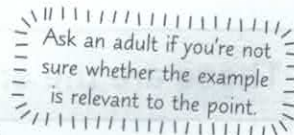 Ask an adult if you're not
sure whether the example
is relevant to the point.